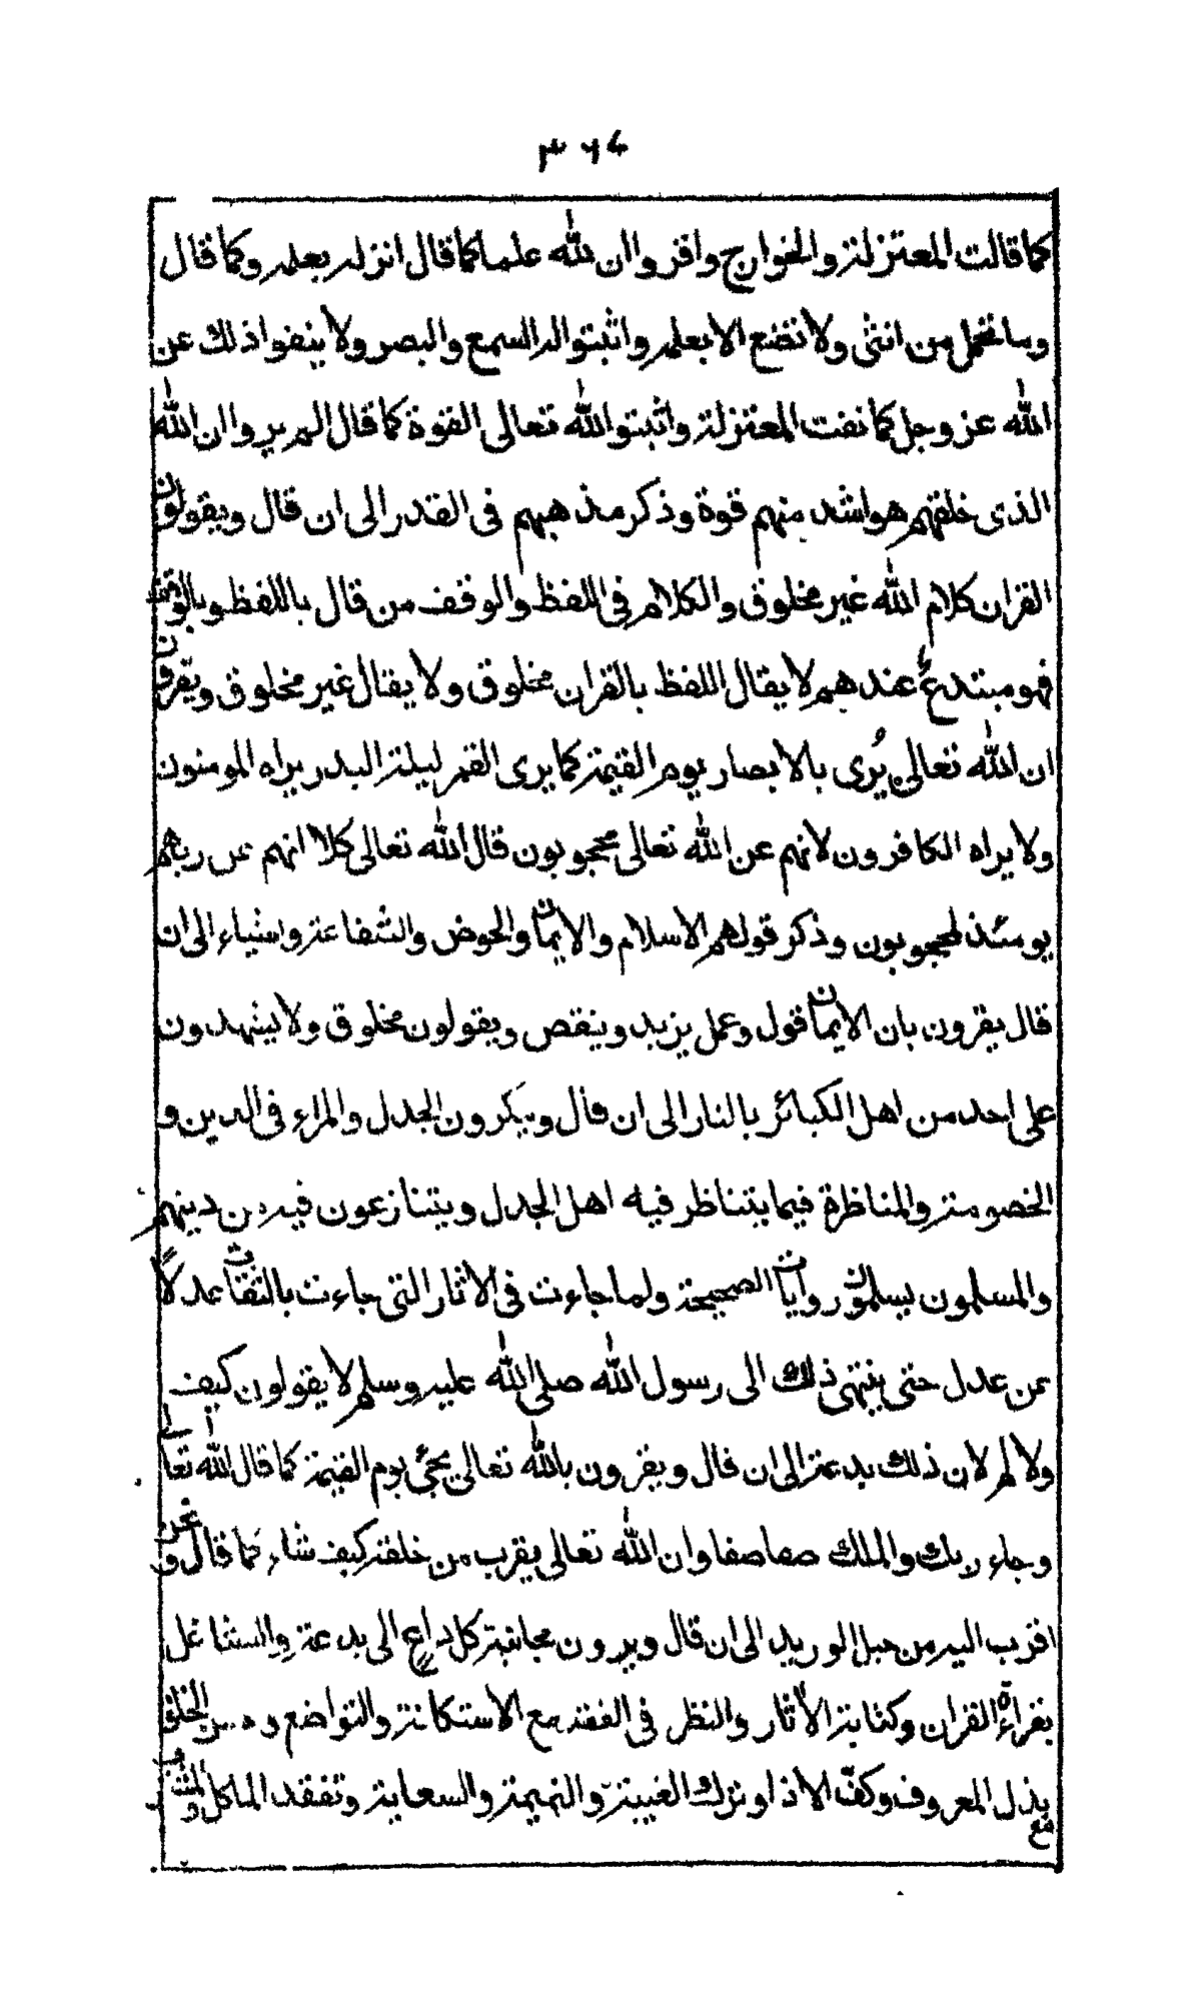 ٣٦٤
كما قالت المعتزلة والخوارج واقروا ان لله علما كما قال انزله بعلمه وكما قال
وما تحمل من انثى ولا تضع الا بعلمه واثبتوا له السمع والبصر ولا ينفوا ذلك عن
الله عز وجل كما نفت المعتزلة واثبتو الله تعالى القوة كما قال الم يروا ان الله
الذى خلقهم هو اشد منهم قوة وذكر مذهبهم فى القدر الى ان قال ويقولون
القران كلام الله غير مخلوق والكلام فى اللفظ والوقف من قال باللفظ وبالوقف
فهو مبتدعٌ عندهم لا يقال اللفظ بالقران مخلوق ولا يقال غير مخلوق ويقرون
ان الله تعالى يُرى بالابصار يوم القيمة كما يرى القمر ليلة البدر يراه المومنون
ولا يراه الكافرون لانهم عن الله تعالى محجوبون قال الله تعالى كلا انهم عن ربهم
يومئذ لمحجوبون وذكر قولهم الاسلام والايمان والحوض والشفاعة واشياء الى ان
قال يقرون بان الايمان قول وعمل يزيد وينقص ويقولون مخلوق ولا يشهدون
على احد من اهل الكبائر بالنار الى ان قال وينكرون الجدل والمراء فى الدين و
الخصومة والمناظرة فيما يتناظر فيه اهل الجدل ويتنازعون فيه من دينهم
والمسلمون يسلمون روايات الصحيحة ولما جاءت فى الاثار التى جاءت بالثقات عدلًا
عن عدل حتى ينتهى ذلك الى رسول الله صلى الله عليه وسلم لا يقولون كيف
ولا لم لان ذلك بدعة الى ان قال ويقرون بالله تعالى يجئ يوم القيمة كما قال الله تعالى
وجاء ربك والملك صفا صفا وان الله تعالى يقرب من خلقه كيف شاء كما قال ونحن
اقرب اليه من حبل الوريد الى ان قال ويرون مجانبة كل داعٍ الى بدعة والتشاغل
بقراءة القران وكتابة الاثار والنظر فى الفقه مع الاستكانة والتواضع وحسن الخلق
مع بذل المعروف وكفّ الاذا وترك الغيبة والنميمة والسعاية وتفقد الماكل والمشرب